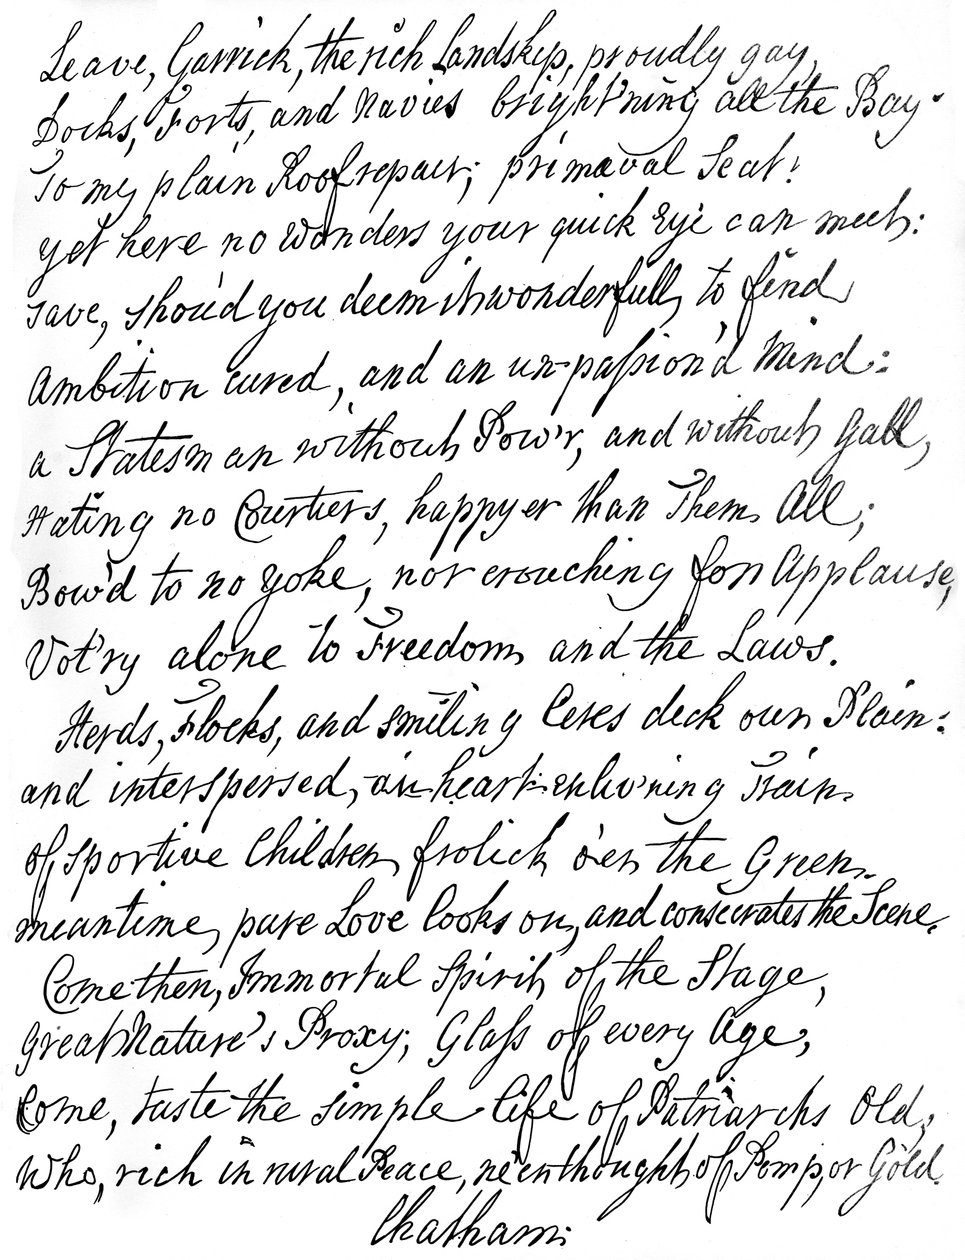 Leave, Garrick, the rich Landskip, proudly gay,
Docks, Forts, and Navies bright'ning all the Bay.
To my plain Roof repair; primæval Seat!
yet here no Wonders your quick Eye can meet:
save, shou'd you deem it wonderfull, to find
Ambition cured, and an un-passion'd Mind:
a Statesman without Pow'r, and without Gall,
Hating no Courtiers, happyer than Them All;
Bow'd to no Yoke, nor crouching for Applause,
Vot'ry alone to Freedom, and the Laws.
Herds, Flocks, and smiling Ceres deck our Plain:
and interspersed, an heart-enliv'ning Train
of sportive Children frolick o'er the Green.
meantime, pure Love looks on, and consecrates the Scene.
Come then, Immortal Spirit of the Stage,
Great Nature's Proxy; Glass of every Age;
Come, taste the simple Life of Patriarchs Old,
Who, rich in rural Peace, ne'er thought of Pomp, or Gold.
Chatham: